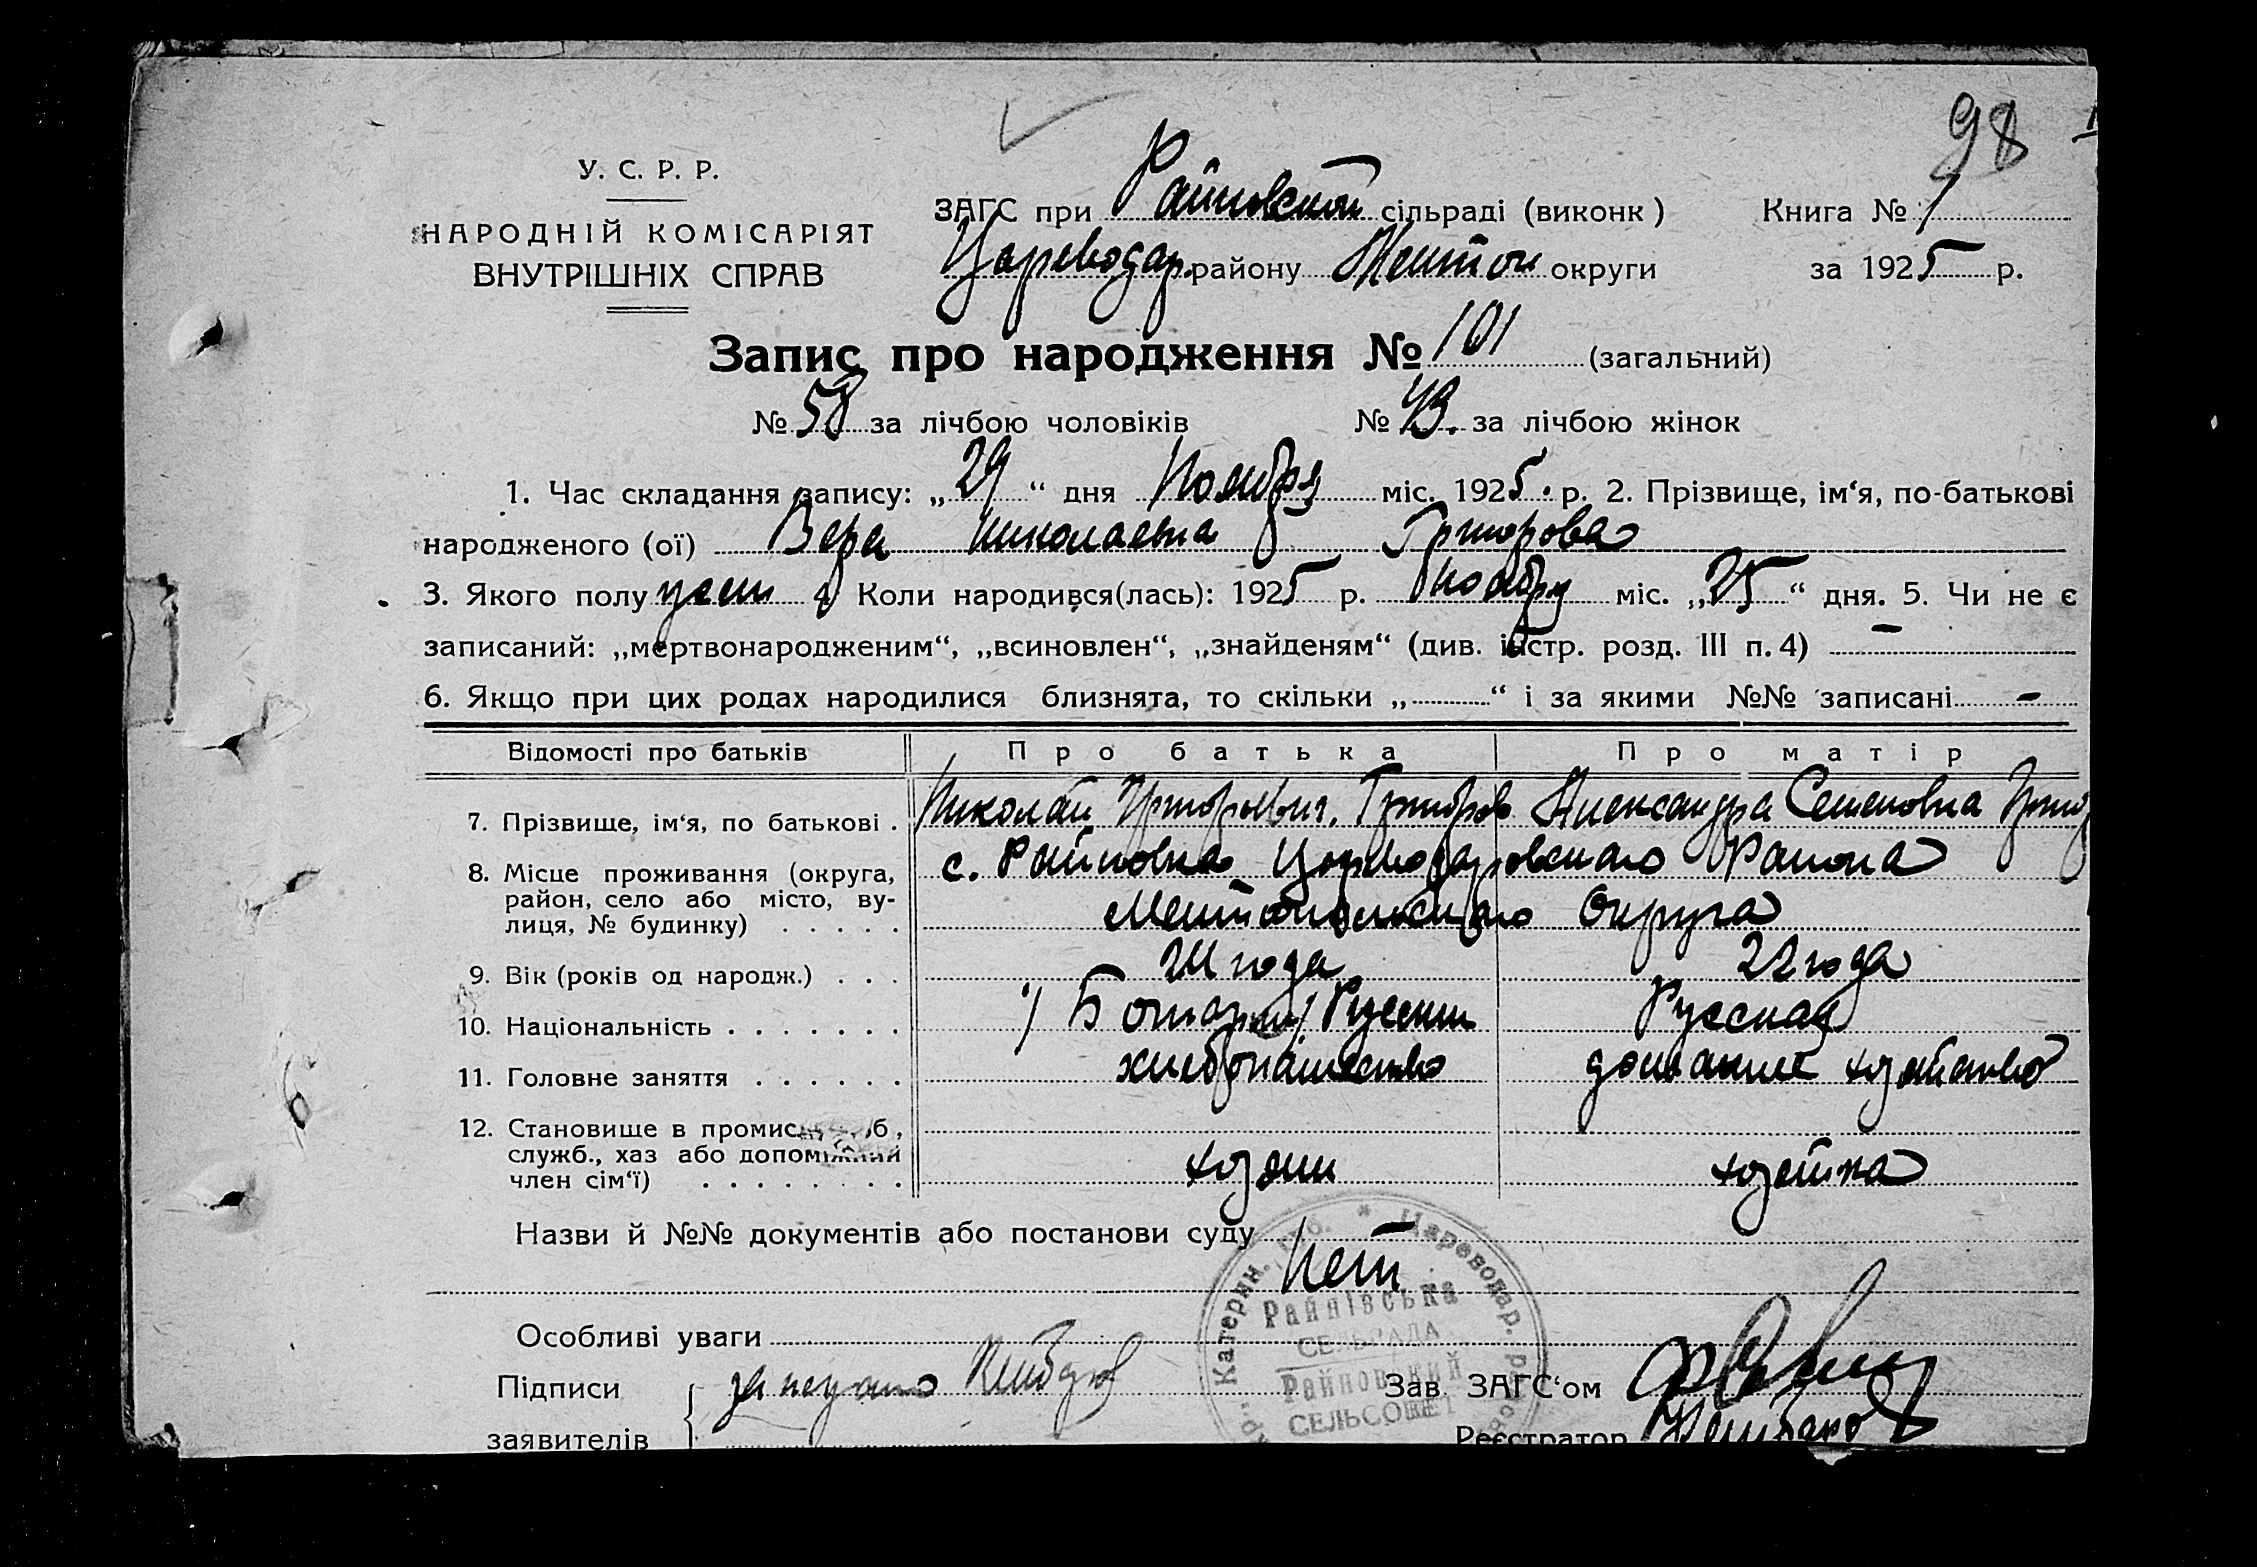 98
У. С. Р. Р.
НАРОДНІЙ КОМІСАРІЯТ
ВНУТРІШНІХ СПРАВ
ЗАГС при Райновской сільраді (виконк)
Книга № 1
Цареводар. району Мелитоп округи
за 1925 р.
Запис про народження № 101 (загальний)
№ 58 за лічбою чоловіків № 43. за лічбою жінок
1. Час складання запису: „29“ дня Ноября міс. 1925. р. 2. Прізвище, ім‘я, по-батькові
народженого (ої) Вера Николаевна
3. Якого полу жен 4 Коли народився(лась): 1925 р. Ноября міс. „25“ дня. 5. Чи не є
записаний: „мертвонародженим“, „всиновлен“, „знайденям“ (див. інстр. розд. III п. 4) —
6. Якщо при цих родах народилися близнята, то скільки „ “ і за якими №№ записані -
Відомості про батьків Про батька Про матір
7. Прізвище, ім‘я, по батькові . Николай Александра Семеновна
8. Місце проживання (округа, район, село або місто, вулиця, № будинку) . . . . . с. Райновка Цареводаровского Района
Мелитопольского Округа
9. Вік (років од народж.) . . . года 22 года
10. Національність . . . . . . . Русский Русская
11. Головне заняття . . . . . . хлебопашество домашнее хозяйство
12. Становище в промис
служб., хаз або допоміжний
член сім‘ї) . . . . . . . . хозяин хозяйка
Назви й №№ документів або постанови суду
Нет
Катерин. губ. * Цареводар. район
Райнівська
СЕЛЬРАДА
Райновский
СЕЛЬСОВЕТ
Особливі уваги
Підписи
заявителів
Зав. ЗАГС‘ом
Реєстратор